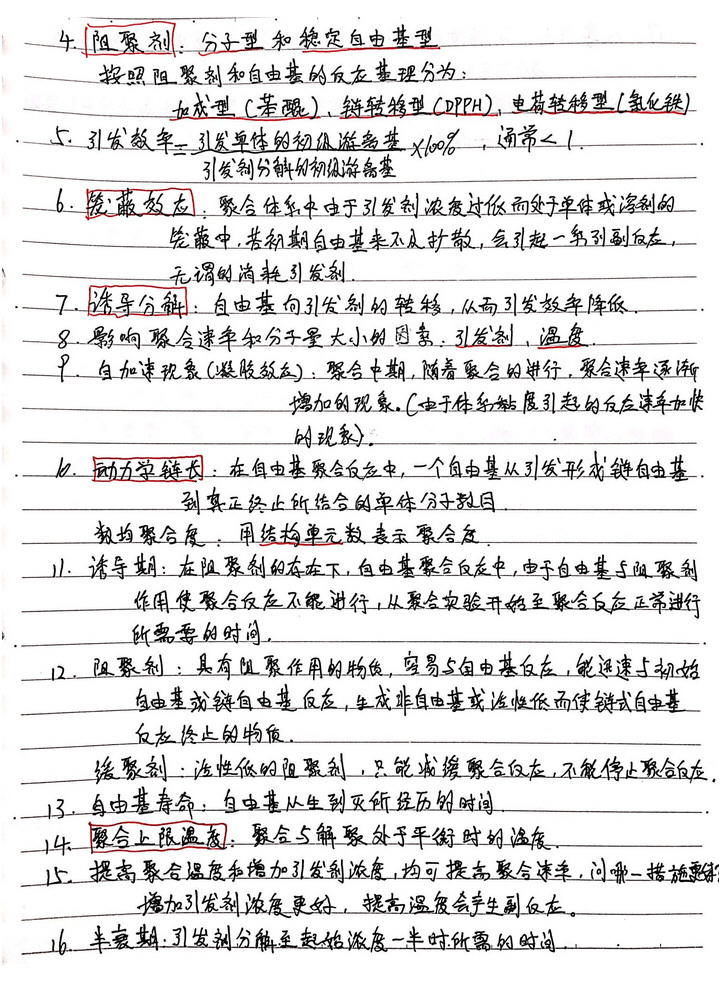 4. 阻聚剂：分子型和稳定自由基型
按照阻聚剂和自由基的反应基理分为：
加成型（苯醌）、链转移型（DPPH）、电荷转移型（氯化铁）
5. 引发效率=引发单体的初级游离基/引发剂分解的初级游离基×100%，通常<1.
6. 笼蔽效应：聚合体系中由于引发剂浓度过低而处于单体或溶剂的
笼蔽中，若初期自由基来不及扩散，会引起一系列副反应，
无谓的消耗引发剂.
7. 诱导分解：自由基向引发剂的转移，从而引发效率降低.
8. 影响聚合速率和分子量大小的因素：引发剂、温度.
9. 自加速现象（凝胶效应）：聚合中期，随着聚合的进行，聚合速率逐渐
增加的现象。（由于体系粘度引起的反应速率加快
的现象）.
10. 动力学链长：在自由基聚合反应中，一个自由基从引发形成链自由基
到真正终止所结合的单体分子数目.
数均聚合度：用结构单元数表示聚合度.
11. 诱导期：在阻聚剂的存在下，自由基聚合反应中，由于自由基与阻聚剂
作用使聚合反应不能进行，从聚合实验开始至聚合反应正常进行
所需要的时间.
12. 阻聚剂：具有阻聚作用的物质，容易与自由基反应，能迅速与初始
自由基或链自由基反应，生成非自由基或活性低而使链式自由基
反应终止的物质.
缓聚剂：活性低的阻聚剂，只能减缓聚合反应，不能停止聚合反应.
13. 自由基寿命：自由基从生到灭所经历的时间
14. 聚合上限温度：聚合与解聚处于平衡时的温度.
15. 提高聚合温度和增加引发剂浓度，均可提高聚合速率，问哪一措施更好
增加引发剂浓度更好，提高温度会产生副反应。
16. 半衰期：引发剂分解至起始浓度一半时所需的时间.